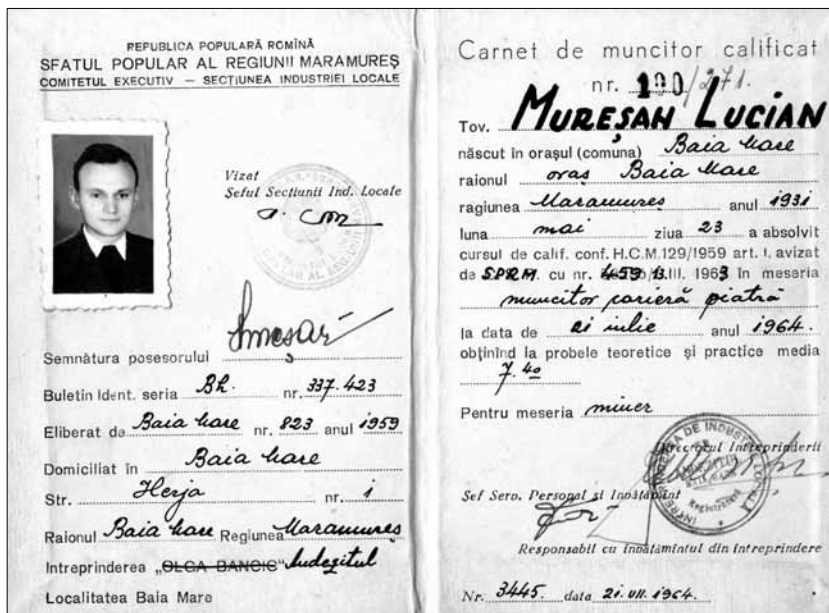 REPUBLICA POPULARĂ ROMÎNĂ
SFATUL POPULAR AL REGIUNII MARAMUREȘ
COMITETUL EXECUTIV — SECȚIUNEA INDUSTRIEI LOCALE
Vizat
Șeful Secțiunii Ind. Locale
Semnătura posesorului
Buletin Ident. seria Bh. nr. 337.423
Eliberat de Baia Mare nr. 823 anul 1959
Domiciliat în Baia Mare
Str. Herja nr. 1
Raionul Baia Mare Regiunea Maramureș
Intreprinderea „OLGA BANCIC"
Localitatea Baia Mare
Carnet de muncitor calificat
nr. 100/271.
Tov. MUREȘAN LUCIAN
născut în orașul (comuna) Baia Mare
raionul oraș Baia Mare
ragiunea Maramureș anul 1931
luna mai ziua 23 a absolvit
cursul de calif. conf. H.C.M. 129/1959 art. I, avizat
de S.P.R.M. cu nr. III. 1963 în meseria
muncitor carieră piatră
la data de 21 iulie anul 1964.
obținînd la probele teoretice și practice media
7.40
Pentru meseria miner
Directorul Intreprinderii
Șef Serv. Personal și Învățămînt
Responsabil cu învățămîntul din întreprindere
Nr. 3445. data 21.VII.1964.